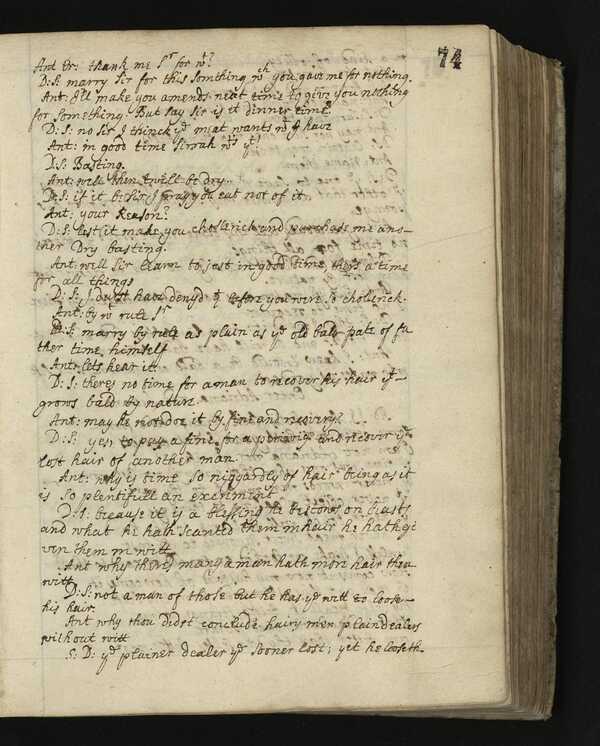 74
Ant Er: thank me Sr for wt?
D: S: marry Sir for this somthing wch you gave me for nothing.
Ant: I'll make you amends next time to give you nothing
for something. But say Sir is it dinner time?
D: S: no Sir I thinck ye meat wants wt I have
Ant: in good time Sirrah wts yt?
D: S: Basting.
Ant: will then twill be dry.
D: S: if it be Sir I pray you eat not of it
Ant: your Reason?
D: S: lest it make you chollerick and purchase me ano-
ther Dry basting.
Ant: will Sir learn to jest in good time, theres a time
for all things
D: S: I durst have deny'd yt before you were so cholerick.
Ant: by wt rule Sr
D: S: marry by rule as plain as ye old bald pate of fa
ther time himself
Ant: lets hear it.
D: S: theres no time for a man to recover his hair yt
grows bald by nature.
Ant: may he not doe it by fine and recovery?
D: S: yes, to pay a fine for a perriwig and recover ye
lost hair of another man.
Ant: why is time so niggardly of hair being as it
is so plentifull an excriment
D: S: because it is a blessing he bestows on beasts
and what he hath scanted them in hair he hath gi
ven them in witt
Ant why theres many a man hath more hair then
witt
D: S: not a man of those but he has ye witt to loose
his hair.
Ant why thou didst conclude hairy men plain dealers
without witt
S: D: ye plainer dealer ye sooner lost; yet he looseth